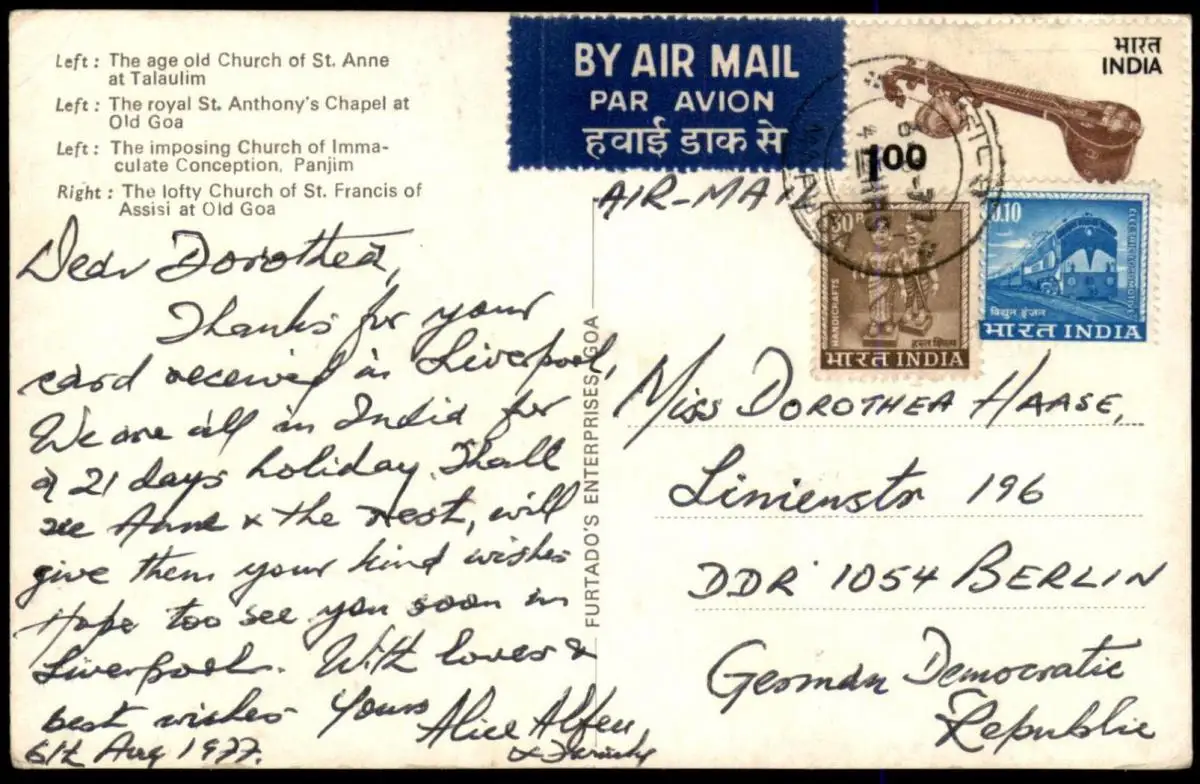 Left : The age old Church of St. Anne
at Talaulim
Left : The royal St. Anthony's Chapel at
Old Goa
Left : The imposing Church of Imma-
culate Conception, Panjim
Right : The lofty Church of St. Francis of
Assisi at Old Goa
BY AIR MAIL
PAR AVION
हवाई डाक से
भारत
INDIA
1.00
AIR-MAI
30 P
HANDICRAFTS
हस्त शिल्प
भारत INDIA
0.10
ELECTRIC LOCOMOTIVE
विद्युत इंजन
भारत INDIA
Dear Dorothea,
Thanks for your
card received in Liverpool,
We are all in India for
a 21 days holiday. Shall
see Anne & the rest, will
give them your kind wishes
Hope too see you soon in
Liverpool. With loves &
best wishes Yours
Alice
& Family
6th Aug 1977.
FURTADO'S ENTERPRISES, GOA
MISS DOROTHEA HAASE,
Linienstr 196
DDR 1054 BERLIN
German Democratic
Republic